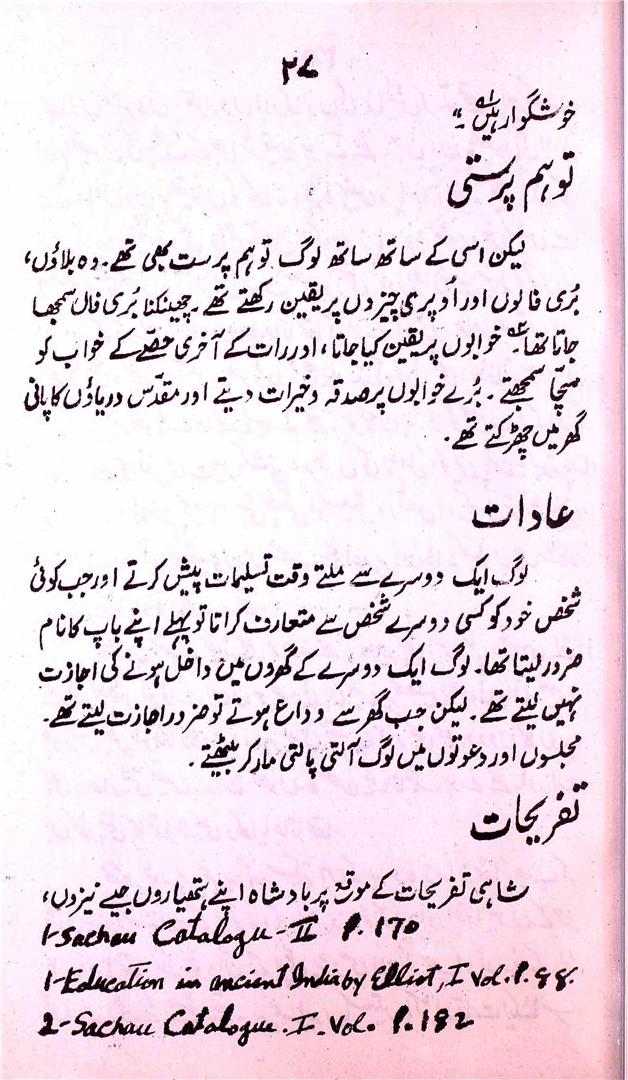 ۲۷
خوشگوار ہیں ۱؎ "
توہم پرستی
لیکن اسی کے ساتھ ساتھ لوگ توہم پرست بھی تھے۔ وہ بلاؤں،
بُری فالوں اور اُوپری چیزوں پر یقین رکھتے تھے۔ چھینکنا بُری فال سمجھا
جاتا تھا۔ خوابوں پر یقین کیا جاتا، اور رات کے آخری حصّے کے خواب کو
سچّا سمجھتے۔ بُرے خوابوں پر صدقہ وخیرات دیتے اور مقدّس دریاؤں کا پانی
گھر میں چھڑکتے تھے۔
عادات
لوگ ایک دوسرے سے ملتے وقت تسلیمات پیش کرتے اور جب کوئی
شخص خود کو کسی دوسرے شخص سے متعارف کراتا تو پہلے اپنے باپ کا نام
ضرور لیتا تھا۔ لوگ ایک دوسرے کے گھروں میں داخل ہونے کی اجازت
نہیں لیتے تھے۔ لیکن جب گھر سے وداع ہوتے تو ضرور اجازت لیتے تھے۔
مجلسوں اور دعوتوں میں لوگ آلتی پالتی مار کر بیٹھتے۔
تفریحات
شاہی تفریحات کے موقع پر بادشاہ اپنے ہتھیاروں جیسے نیزوں،
1-Sachau Catalogue-II P. 170
1-Education in ancient India by Elliot, I Vol. P. 98.
2-Sachau Catalogue. I. Vol. P. 182